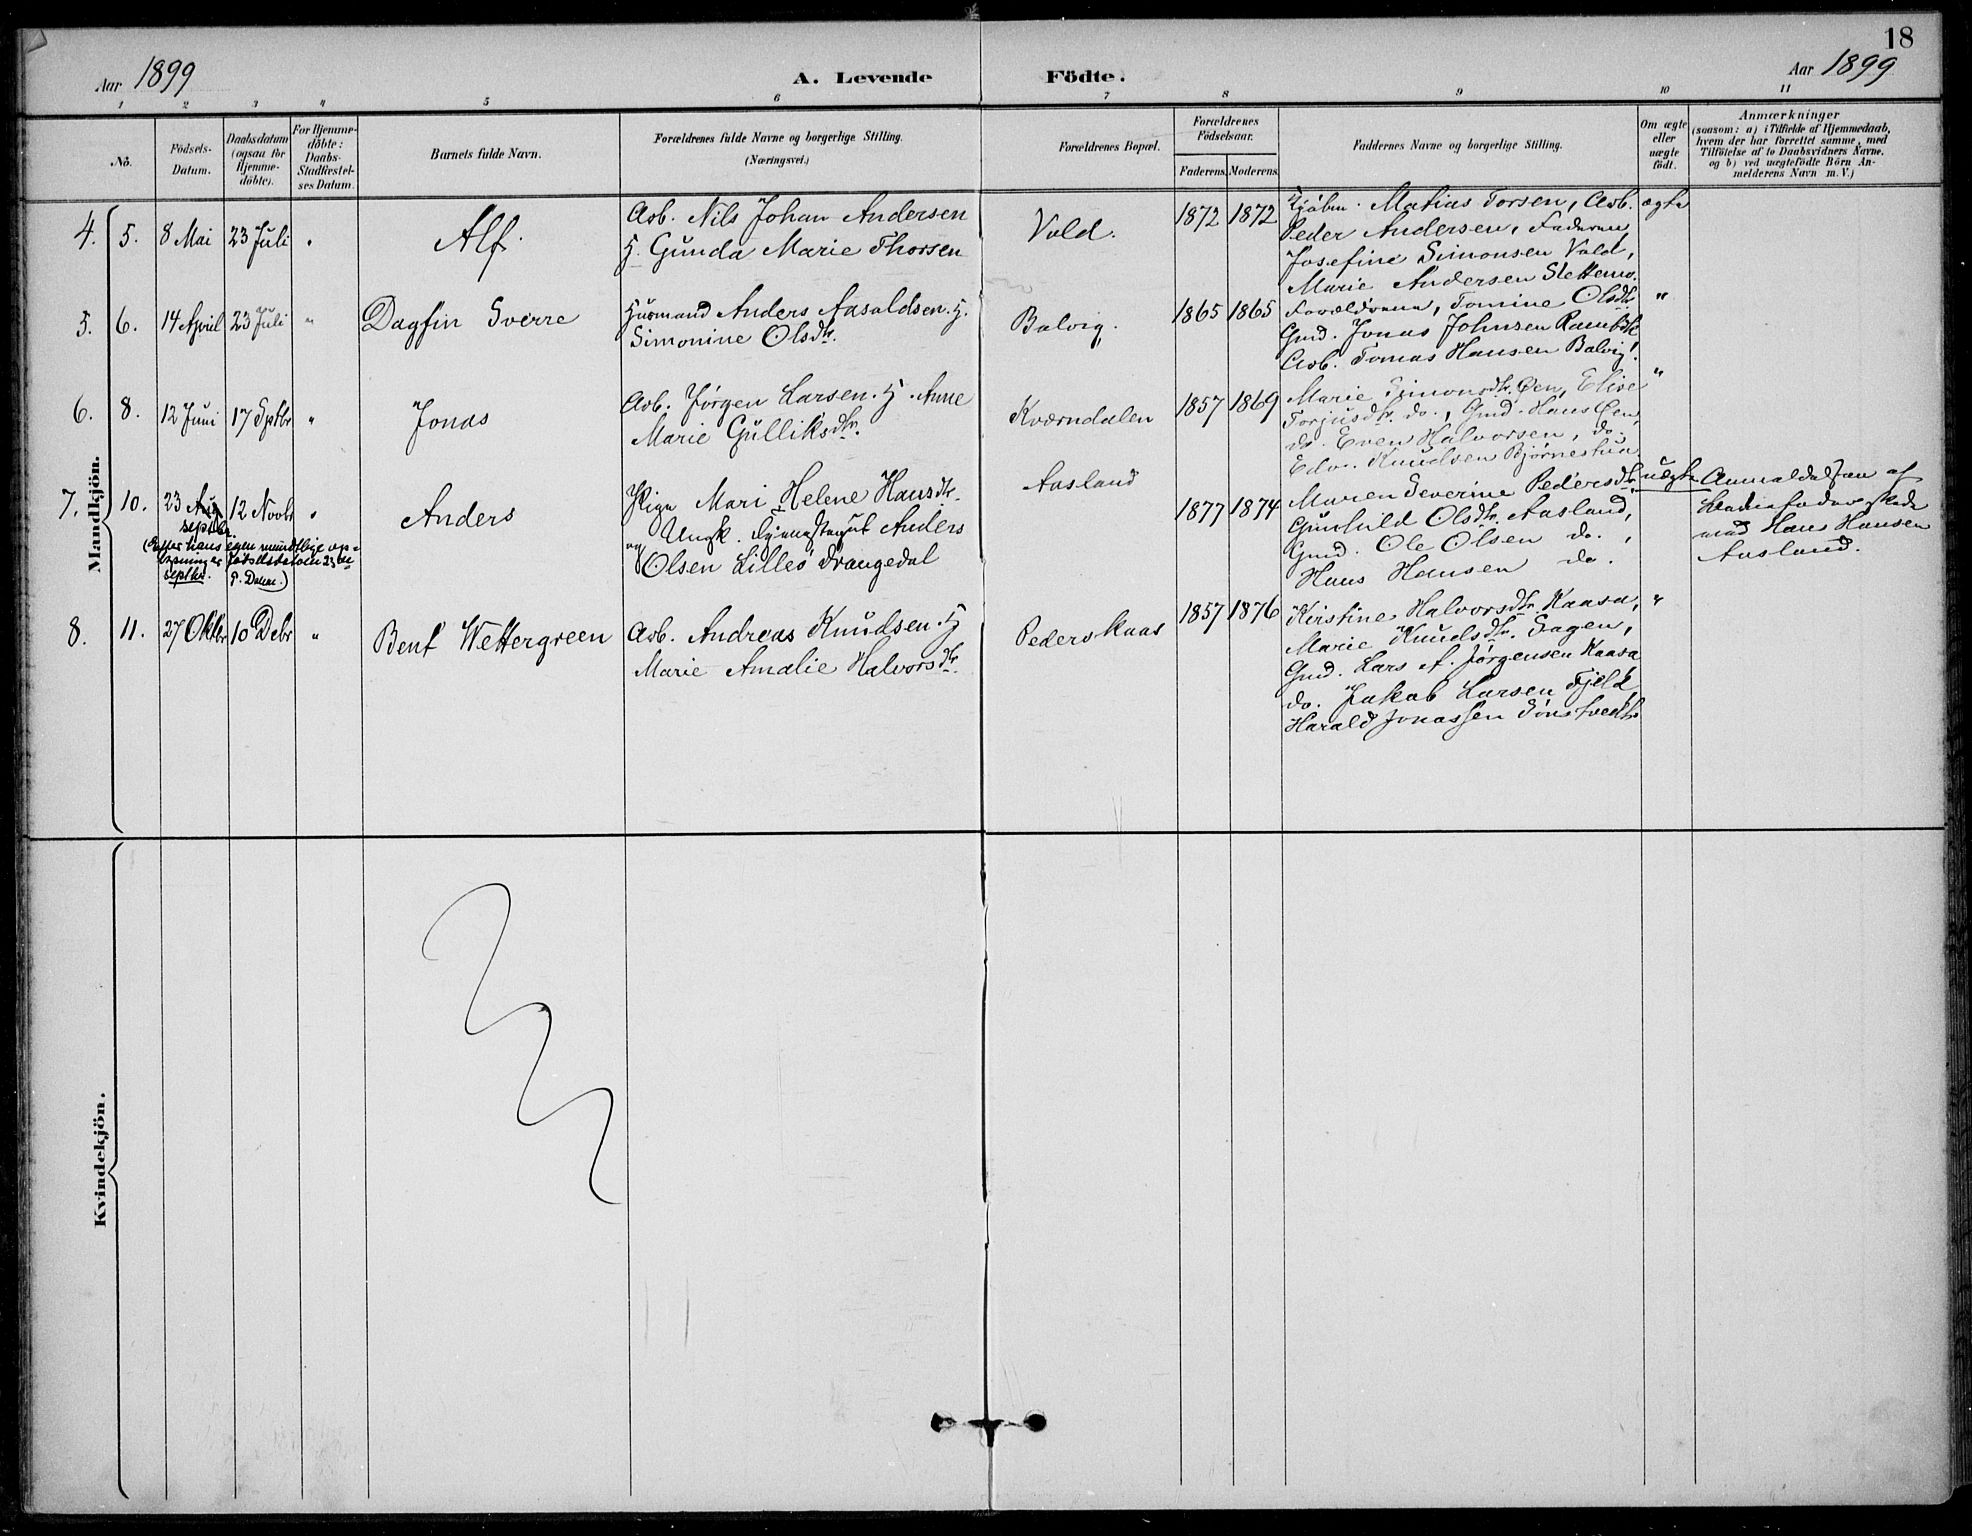 18
Aar 1899 A. Levende Födte. Aar 1899
1 2 3 4 5 6 7 8 9 10 11
No.
Födsels-
Datum.
Daabsdatum
(ogsaa for
Hjemme-
döbte).
For Hjemme-
döbte:
Daabs-
Stadfæstel-
ses Datum.
Barnets fulde Navn.
Forældrenes fulde Navne og borgerlige Stilling.
(Næringsvei.)
Forældrenes Bopæl.
Forældrenes
Födselsaar.
Faderens. Moderens.
Faddernes Navne og borgerlige Stilling.
Om ægte
eller
uægte
födt.
Anmærkninger
(saasom: a) i Tilfælde af Hjemmedaab,
hvem der har forrettet samme, med
Tilföielse af to Daabsvidners Navne,
og b) ved uægtefödte Börn An-
melderens Navn m. V.)
Mandkjön.
4. 5. 8 Mai 23 Juli "
Alf.
Arb. Nils Johan Andersen
H. Gunda Marie Thorsen
Vold.
1872 1872
Matias Torsen, Arb.
Peder Andersen, Faderen,
Josefine Simonsen Vold,
Marie Andersen Slettemo.
ægte
5. 6. 14 April 23 Juli "
Dagfin Sverre
Husmand Anders Aasoldsen. H.
Simonine Olsdtr.
Balvig,
1865 1865
Forældrene, Tomine Olsdtr
Gmd. Jonas Johnsen
Arb. Tomas Hansen Balvig.
"
6. 8. 12 Juni 17 Sptbr "
Jonas
Arb. Jørgen Larsen. H. Anne
Marie Gulliksdtr.
Kværndalen
1857 1869
Marie Simonsdtr. Øen, Elise
Torjusdtr. do., Gmd. Hans Øen,
do. Even Halvorsen, do.
Edv. Knudsen Bjørnestua
"
7. 10. 23 Aug
septbr.
12 Novbr "
(Efter hans egen mundtlige op-
lysning er fødselsdatoen 23de
septbr. )
Anders
Pige Mari Helene Hansdtr.
og Ungk. Tjenestegut Anders
Olsen Lilleø Drangedal
Aasland
1877 1874
Maren Severine Pedersdtr,
Gunhild Olsdtr. Aasland,
Gmd. Ole Olsen do.,
Hans Hansen do.
uægte
Anmeldelsen af
Barnefader skede
med Hans Hansen
Aasland.
8. 11. 27 Oktbr 10 Debr "
Bent Wettergreen
Arb. Andreas Knudsen. H
Marie Amalie Halvorsdtr.
Pederskaas
1857 1876
Kirstine Halvorsdtr. Kaasa,
Marie Knudsdtr. Sagen,
Gmd. Lars A. Jørgensen Kaasa
do. Jakob Larsen Fjeld,
Harald Jonassen Tønstvedt
"
Kvindekjön.